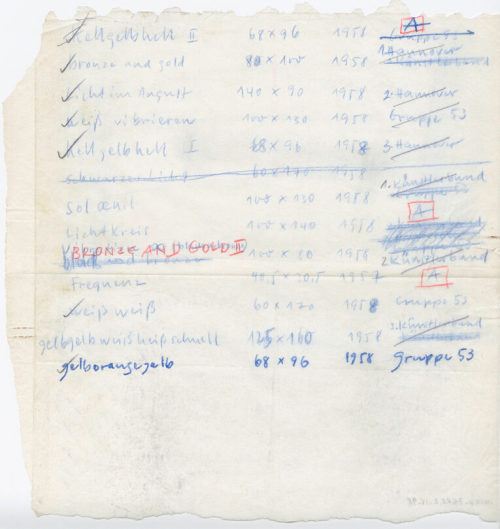 hellgelbhell II 68 x 96 1958 Gruppe 53 A
bronze and gold 80 x 100 1958 1. Hannover Künstlerbund
Licht im August 140 x 90 1958 2. Hannover
weiß vibrieren 100 x 130 1958 Gruppe 53
hellgelbhell I 68 x 96 1958 3. Hannover
schwarzes Licht 60 x 170 1958
1. Künstlerbund Gruppe 53
Sol œnil 100 x 130 1958 A
Lichtkreis 100 x 140 1958
BRONZE AND GOLD II 100 x 80 1958 2. Künstlerbund
Frequenz 40,5 x 30,5 1957 A
weiß weiß 60 x 170 1958 Gruppe 53
gelbgelbweißheißschnell 125 x 160 1958 3. Künstlerbund
gelborangegelb 68 x 96 1958 gruppe 53